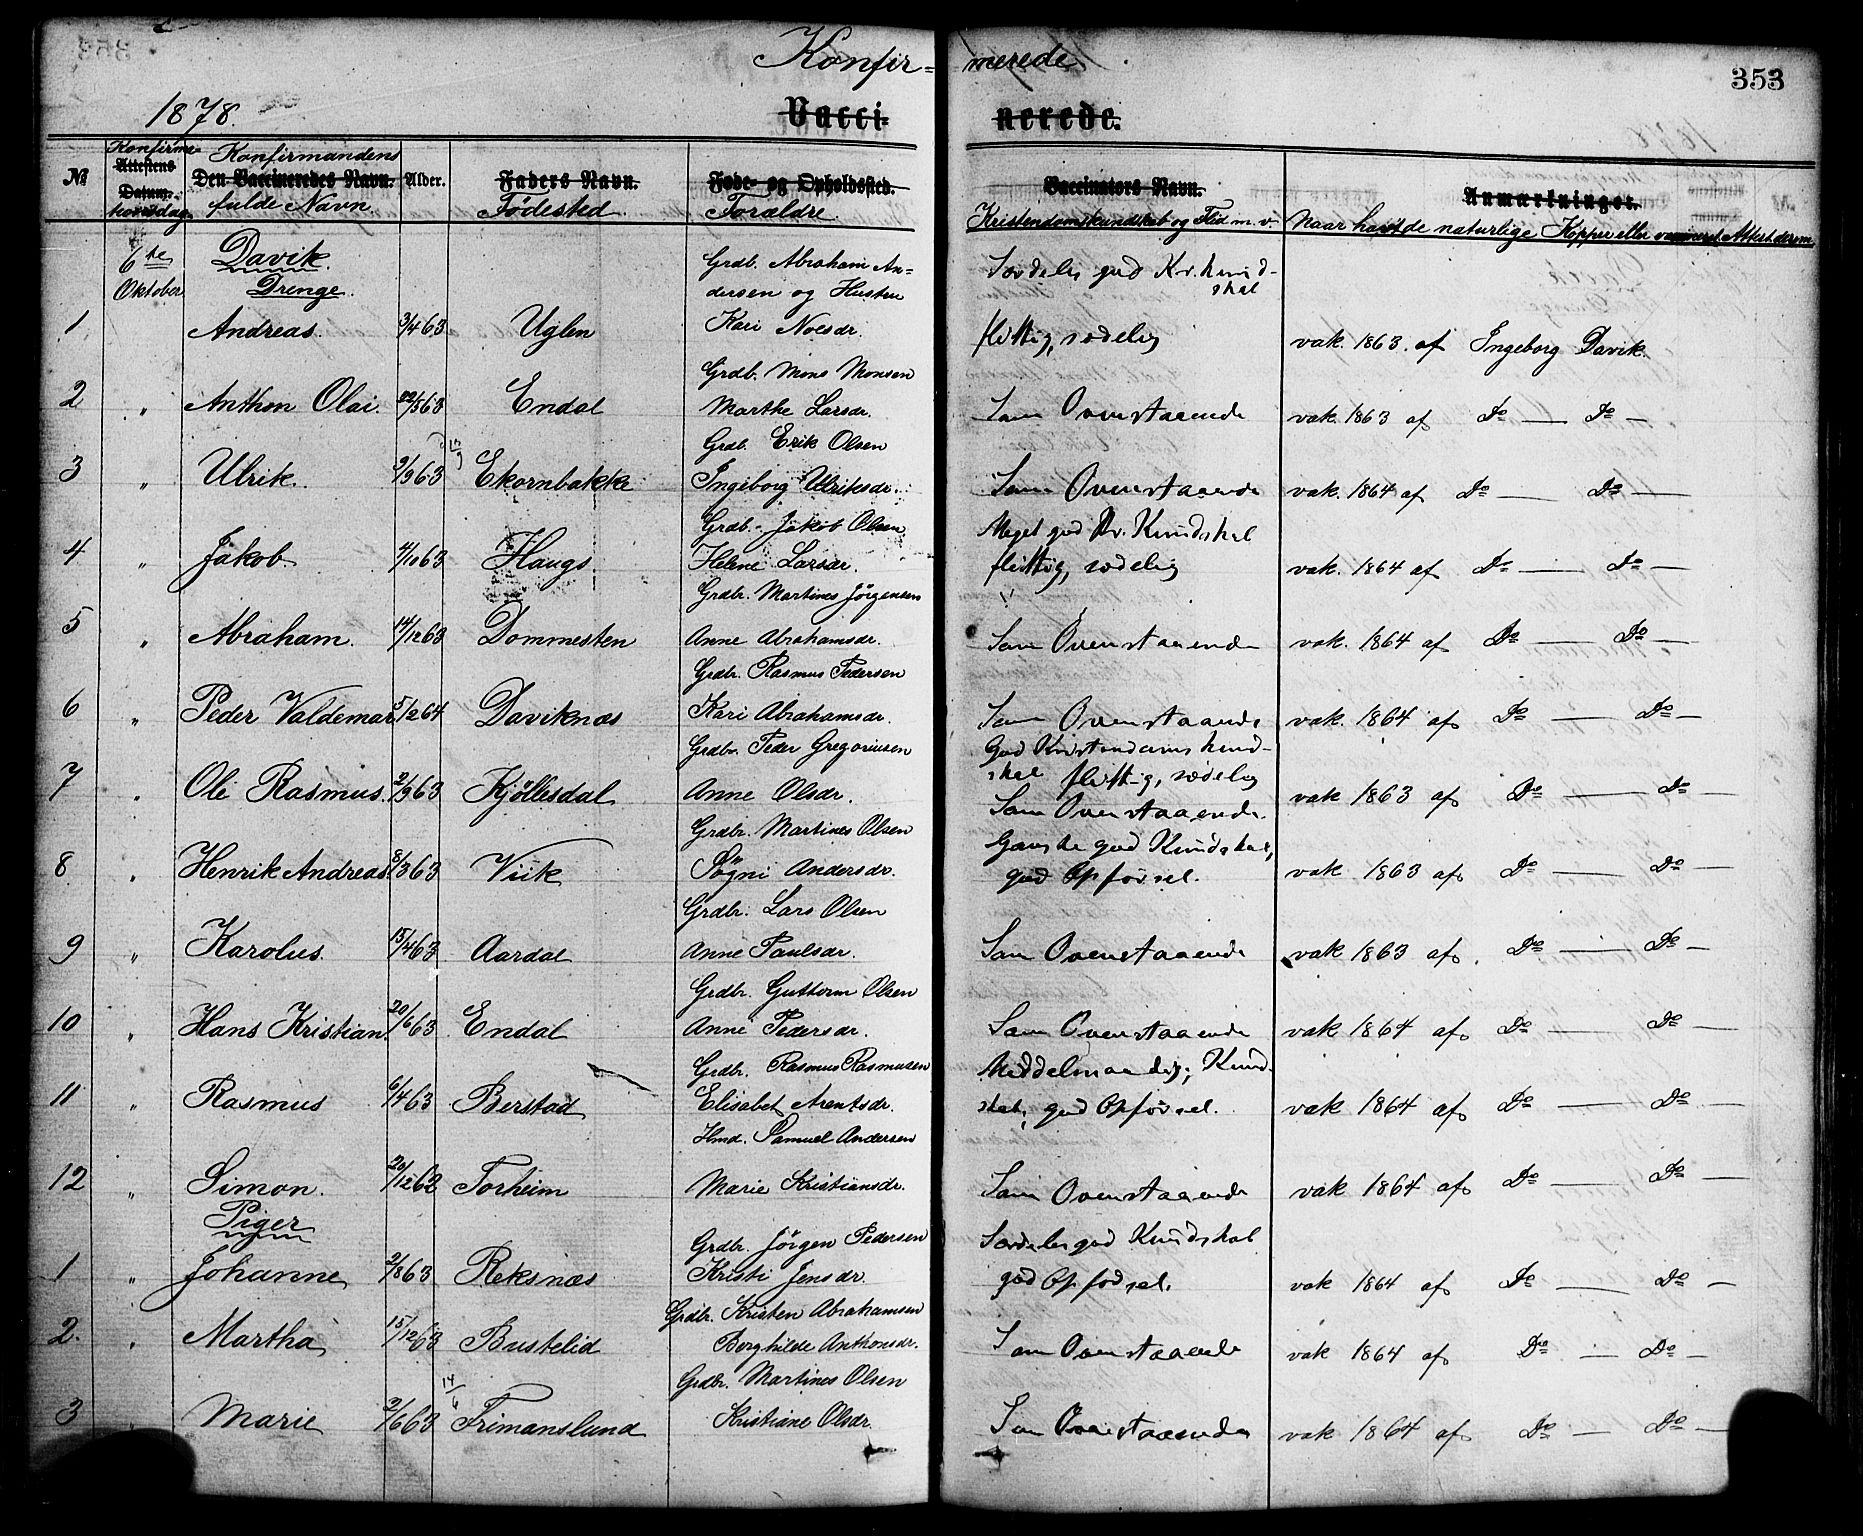 Konfir= merede
353
1878.
Vacci- nerede.
No Konfirma- Attestens Datum. Konfirmandens Den Vaccineredes Navn. fulde Navn. Alder. Faders Navn. Fødested Føde- og Opholdssted. Forældre Vaccinators Navn. Kristendomskundskab og Flid m. v. Anmærkninger. Naar havde naturlige Kopper eller vaccineret Attest derom
6te Oktober Davik Drenge. Grdb. Abraham An- Særdeles god Kr. kund-
dersen og Hustru skab
1 Andreas. 3/4 63 Uglen Kari Noesdr. flittig, sædelig vak. 1863. af Ingeborg Davik.
Grdb. Mons Monsen
2 " Anthon Olai. 22/5 63 Endal Marthe Larsdr. Som Ovenstaaende vak. 1863 af Do — Do —
Grdb. Erik Olsen
3 " Ulrik. 2/9 63 13/9 Ekornbakke Ingeborg Ulriksdr. Som Ovenstaaende vak. 1864 af Do — Do —
Grdb. Jakob Olsen Meget god Kr. Kundskab
4 " Jakob 4/10 63 Haugs. Helene Larsdr. flittig, sædelig vak. 1864 af Do — Do —
Grdbr. Martines Jörgensen
5 " Abraham. 14/12 63 Dommesten Anne Abrahamsdr. Som Ovenstaaende vak. 1864 af Do — Do —
Grdbr. Rasmus Pedersen
6 " Peder Valdemar 5/12 64 Daviknæs Kari Abrahamsdr. Som Ovenstaaende vak. 1864 af Do — Do —
Grdbr. Peder Gregoriusen God Kristendoms kund-
skab flittig, sædelig
7 " Ole Rasmus. 2/9 63 Kjöllesdal Anne Olsdr. Som Ovenstaaende. vak 1863 af Do — Do —
Grdbr. Martines Olsen Ganske god Kundskab,
8 " Henrik Andreas 8/3 63 Viik Søgni Andersdr. god Opførsel. vak 1863 af Do — Do —
Grdbr. Lars Olsen
9 " Karolus. 15/4 63 Aardal Anne Paulsdr. Som Ovenstaaende vak 1863 af. Do — Do —
Grdbr. Guttorm Olsen
10 " Hans Kristian. 20/6 63 Endal Anne Pedersdr. Som Ovenstaaende vak 1864 af Do — Do —
Grdbr. Rasmus Rasmusen Middelmaadig Kund-
11 " Rasmus 6/4 63 Berstad Elisabet Arentsdr. skab, god Opførsel. vak 1864 af Do — Do —
Hmd. Samuel Andersen
12 " Simon. 20/12 62 Torheim Marie Kristiansdr. Som Ovenstaaende vak 1864 af Do — Do —
Piger
Grdbr. Jörgen Pedersen Særdeles god Kundskab
1 " Johanne 2/8 63 Reksnæs Kristi Jensdr. god Opførsel. vak 1864 af Do — Do —
Grdbr. Kristen Abrahamsen
2. " Martha 15/12 63 Bustelid Borghilde Anthonsdr. Som Ovenstaaende vak 1864 af Do — Do —
Grdbr. Martines Olsen
3 " Marie 2/6 63 14/6 Frimanslund Kristiane Olsdr. Som Ovenstaaende vak 1864 af Do — Do —